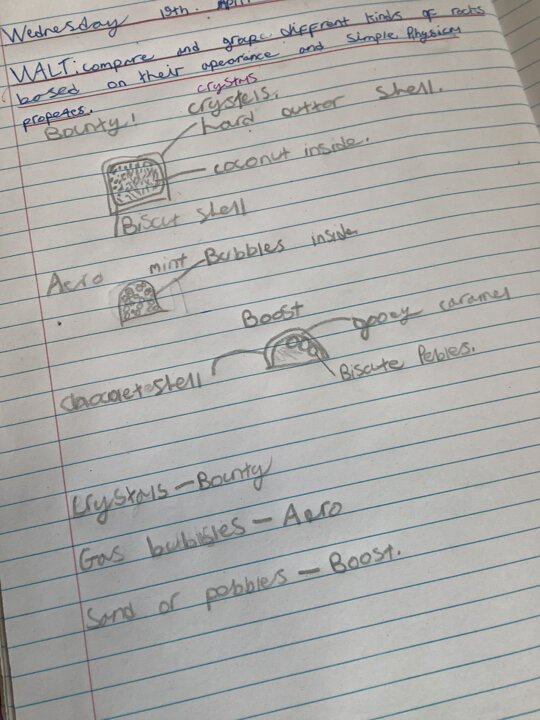 Wednesday 19th. April
WALT: compare and groupe different kinds of rocks
based on their apearance and simple Physicay
propetes. crystals
Bounty! crystels.
hard outter shell.
coconut inside.
Biscut shell
Aero mint Bubbles inside
Boost
gooey caramel
chocolet shell
Biscute Pebles.
crystals - Bounty
Gas bubbles - Aero
Sand or pebbles - Boost.